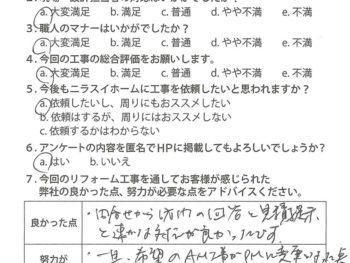 a.大変満足 b.満足 c.普通 d.やや不満 e.不満
3.職人のマナーはいかがでしたか?
a.大変満足 b.満足 c.普通 d.やや不満 e.不満
4.今回の工事の総合評価をお願いします。
a.大変満足 b.満足 c.普通 d.やや不満 e.不満
5.今後もニラスイホームに工事を依頼したいと思われますか?
a.依頼したいし、周りにもおススメしたい
b.依頼はするが、周りにはおススメしない
c.依頼するかはわからない
6.アンケートの内容を匿名でHPに掲載してもよろしいでしょうか?
a.はい b.いいえ
7.今回のリフォーム工事を通してお客様が感じられた
弊社の良かった点、努力が必要な点をアドバイスください。
良かった点
・問合せから の回答と見積提示
と速かな対応が良かったです。
努力が
・一旦、希望のAM PMに変更 点